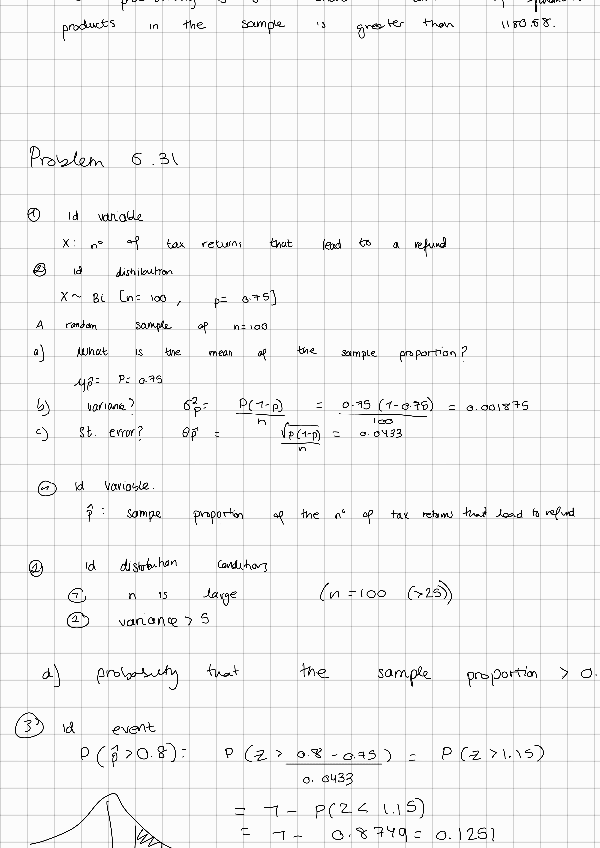 products in the sample is greater than 1180.68.
Problem 6.31
① Id variable
X: n° of tax returns that lead to a refund
② id distribution
X ~ Bi [n=100, p=0.75]
A random sample of n=100
a) What is the mean of the sample proportion?
μp̂ = P = 0.75
b) variance? σ²p̂ = P(1-p)/n = 0.75 (1-0.75)/100 = 0.001875
c) St. error? σp̂ = √p(1-p)/n = 0.0433
① id variable.
p̂ : sample proportion of the n° of tax returns that lead to refund
② id distribution conditions
① n is large (n=100 (>25))
② variance > 5
d) probability that the sample proportion > 0.
③ id event
P(p̂ > 0.8) = P(z > 0.8 - 0.75/0.0433) = P(z > 1.15)
= 1 - P(z < 1.15)
= 1 - 0.8749 = 0.1251